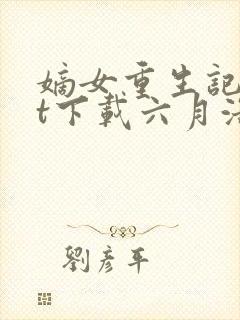 嫡女重生記
t下載六月浩
劉彥平